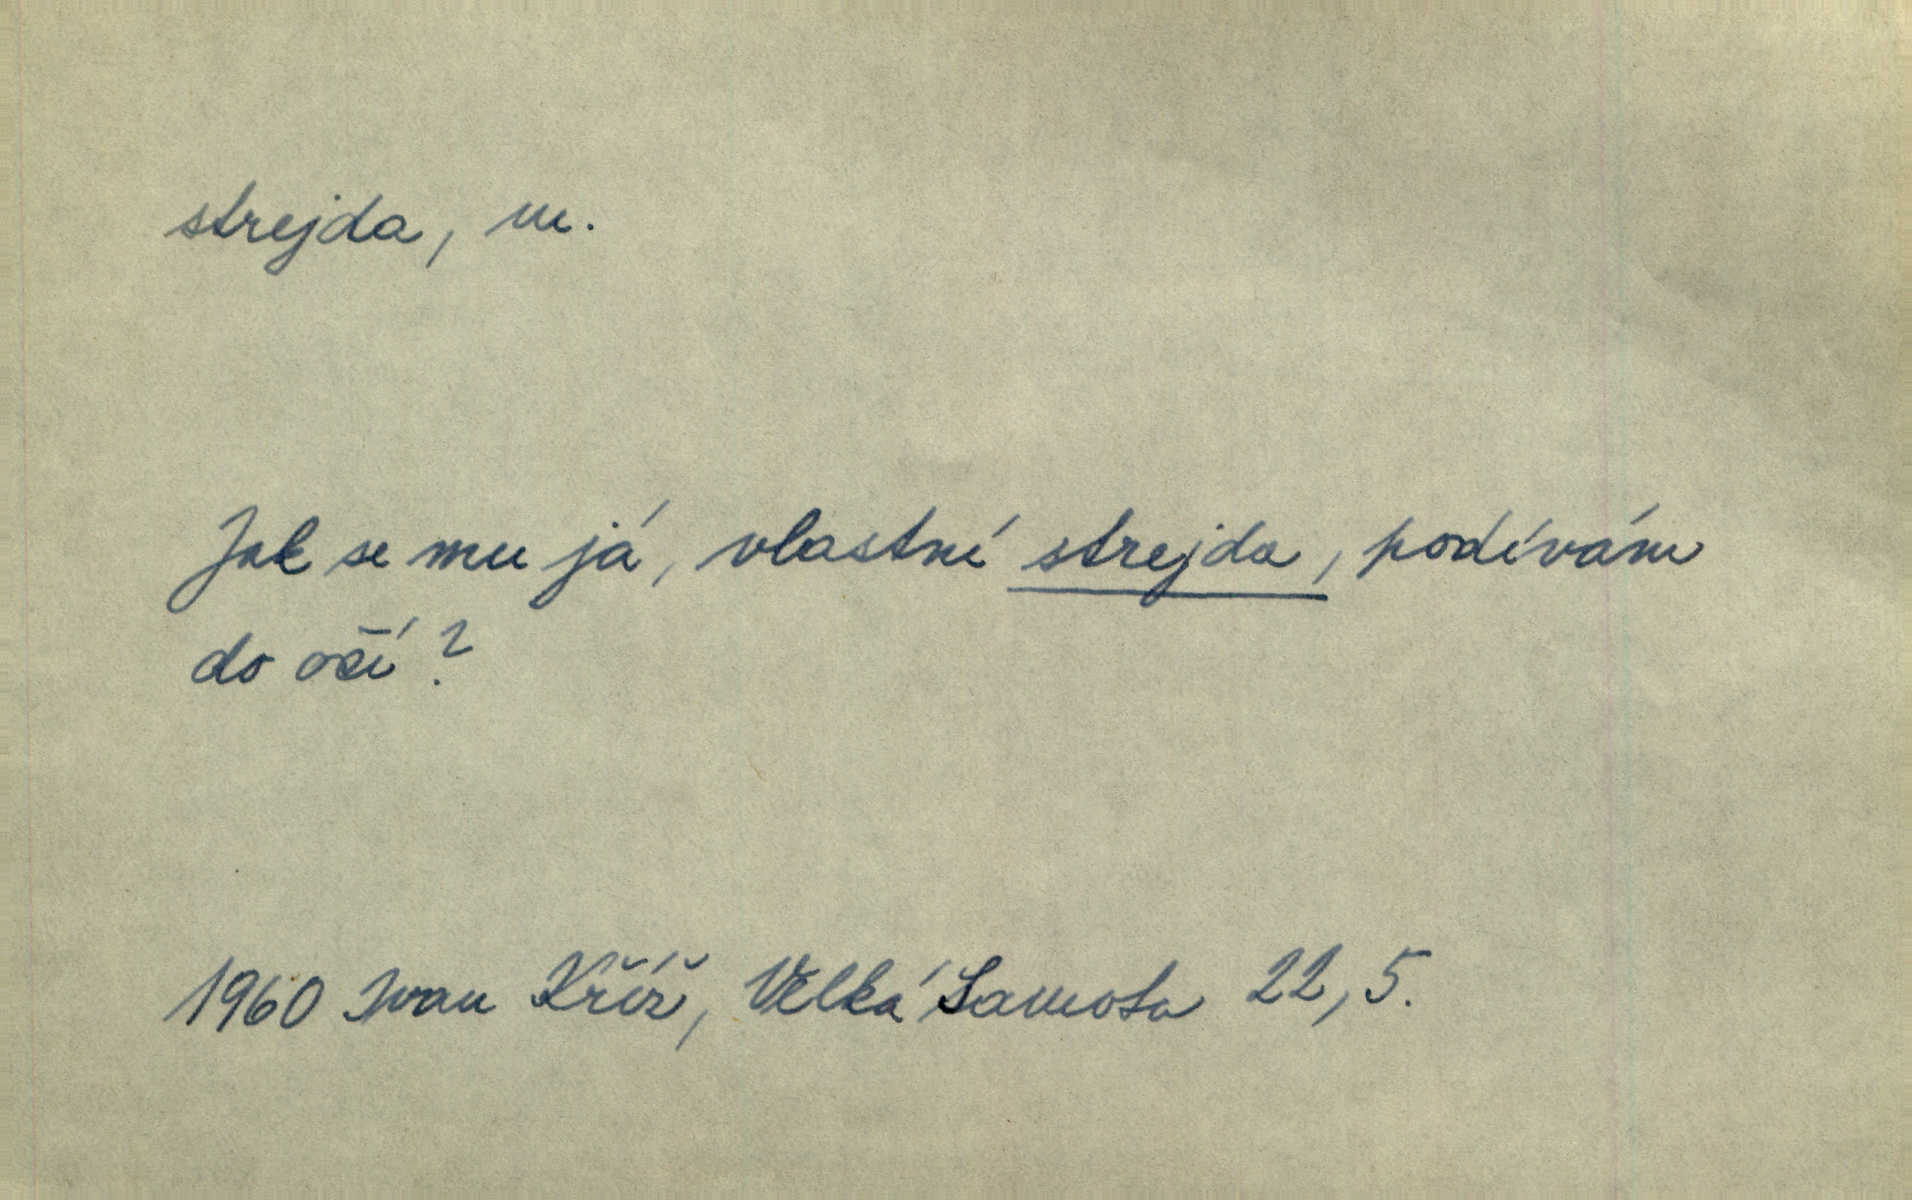 strejda, m.
Jak se mu já, vlastní strejda, podívám
do očí?
1960 Ivan Kříž, Velká Samota 22, 5.